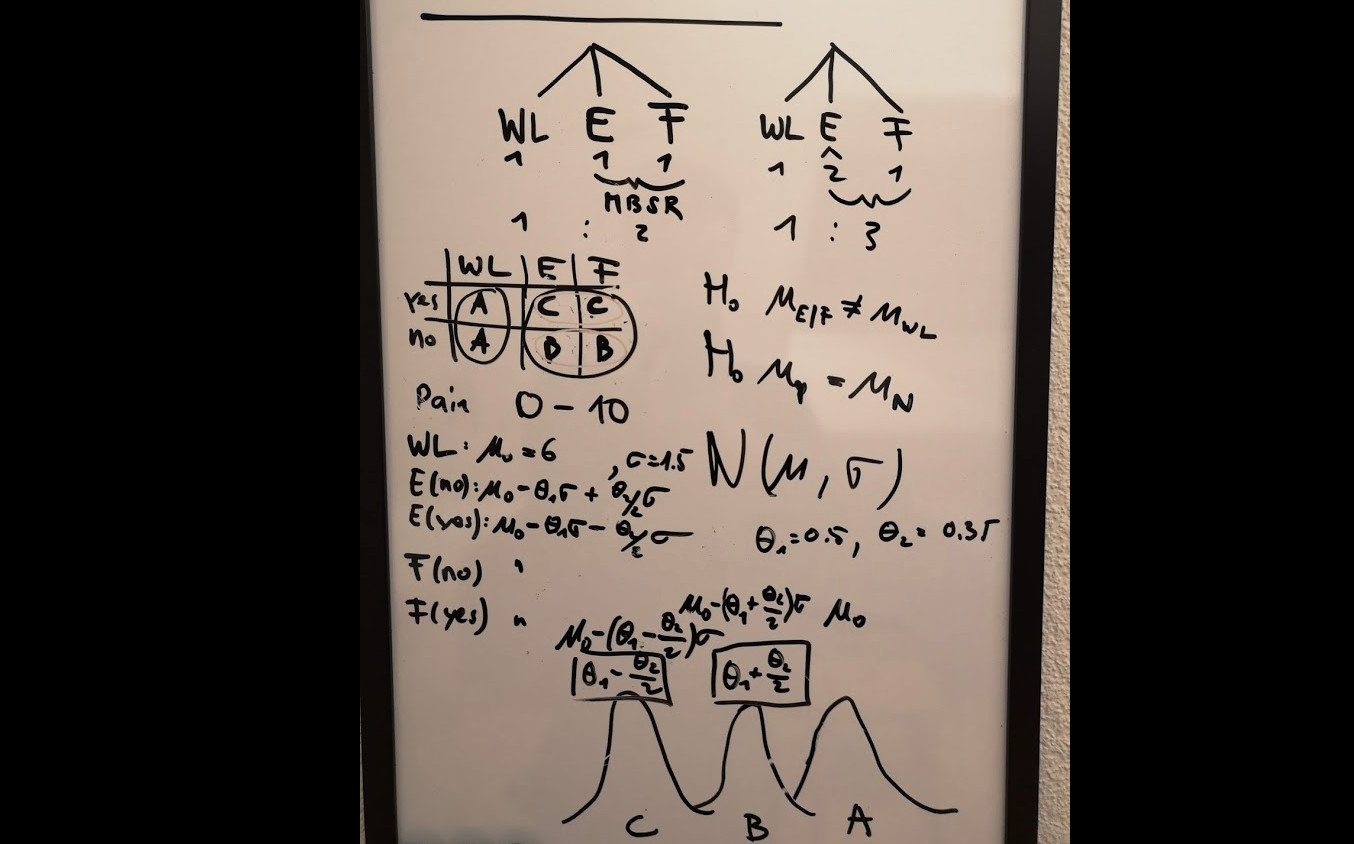 WL E F
1 1 1
MBSR
1 : 2
WL E F
1 2 1
1 : 3
WL E F
yes A C C
no A B B
H₀ μE/F ≠ μWL
H₀ μy = μN
Pain 0 - 10
WL: μ₀ = 6 , σ=1.5
E(no): μ₀ - θ₁σ + θ₂/2 σ
E(yes): μ₀ - θ₁σ - θ₂/2 σ
F(no) "
F(yes) "
N(μ, σ)
θ₁ = 0.5, θ₂ = 0.35
μ₀-(θ₁+θ₂/2)σ μ₀
μ₀-(θ₁-θ₂/2)σ
θ₁-θ₂/2 θ₁+θ₂/2
C B A